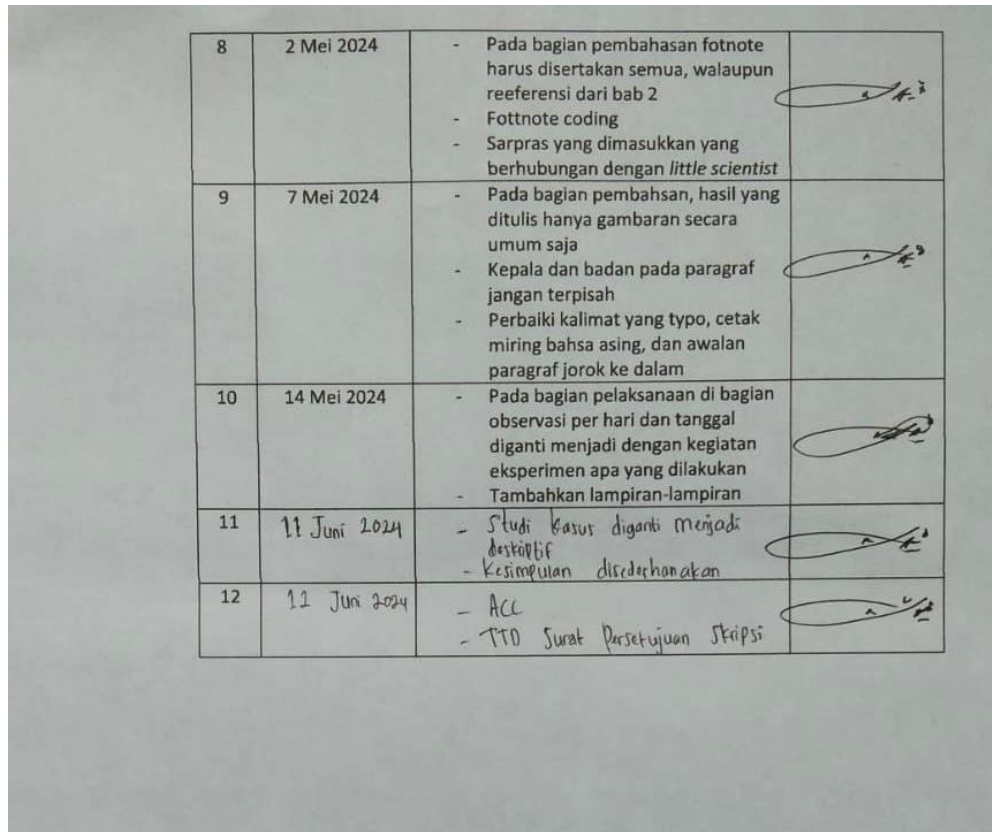 8 2 Mei 2024 - Pada bagian pembahasan fotnote
harus disertakan semua, walaupun
reeferensi dari bab 2
- Fottnote coding
- Sarpras yang dimasukkan yang
berhubungan dengan little scientist
9 7 Mei 2024 - Pada bagian pembahsan, hasil yang
ditulis hanya gambaran secara
umum saja
- Kepala dan badan pada paragraf
jangan terpisah
- Perbaiki kalimat yang typo, cetak
miring bahsa asing, dan awalan
paragraf jorok ke dalam
10 14 Mei 2024 - Pada bagian pelaksanaan di bagian
observasi per hari dan tanggal
diganti menjadi dengan kegiatan
eksperimen apa yang dilakukan
- Tambahkan lampiran-lampiran
11 11 Juni 2024 - Studi kasus diganti menjadi
deskriptif
- Kesimpulan disederhanakan
12 12 Juni 2024 - ACC
- TTD Surat Persetujuan Skripsi